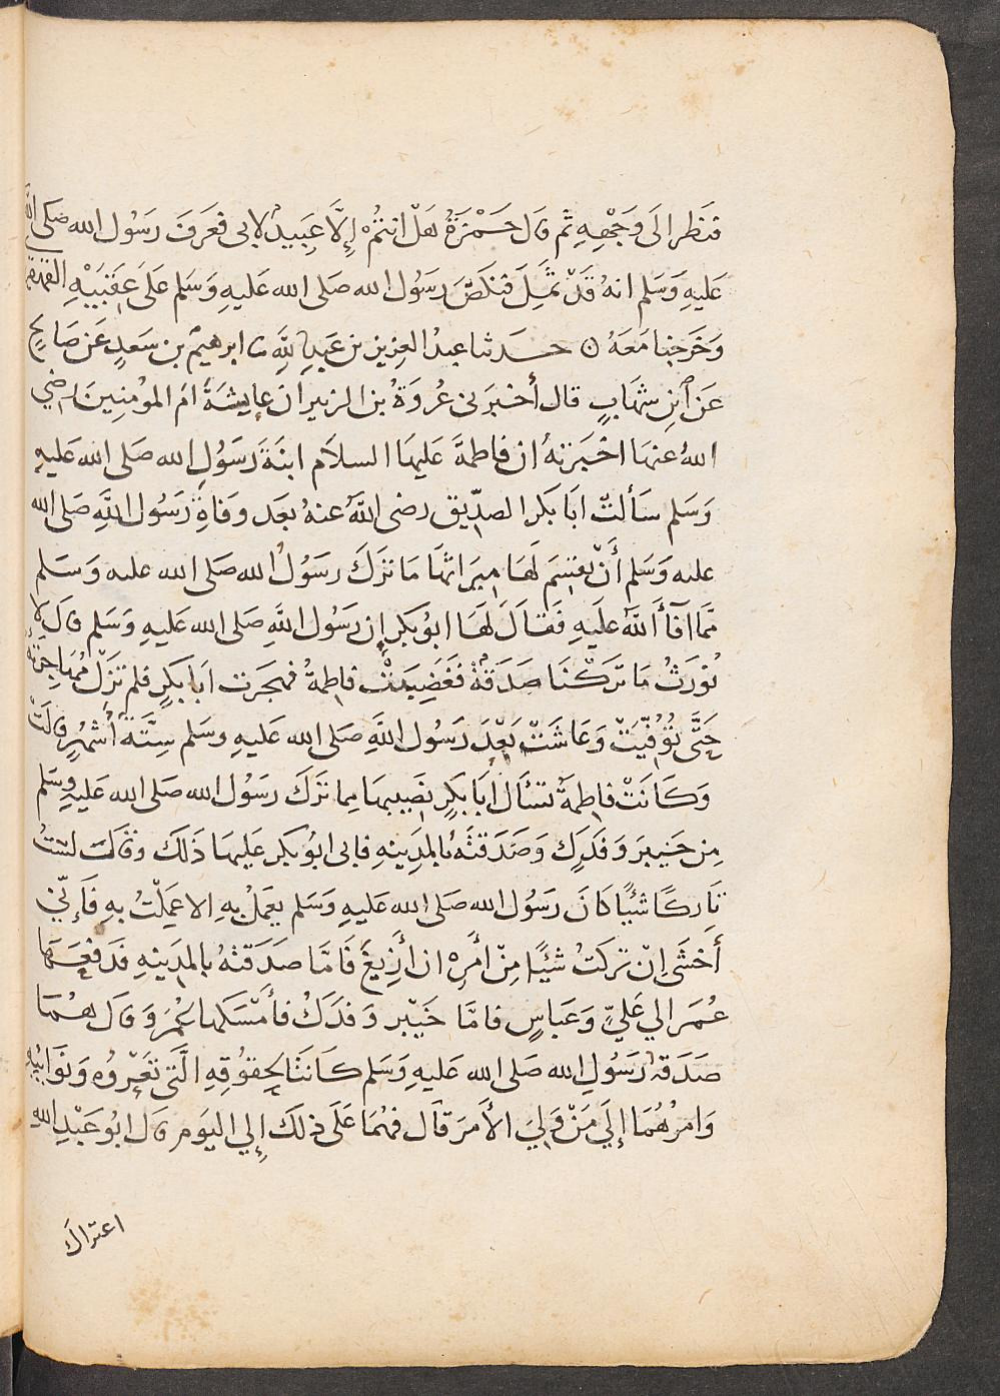 فنظر الى وجهه ثم قال حمزة هل انتم إلا عبيد لابى فعرف رسول الله صلى الله
عليه وسلم انه قد ثمل فنكص رسول الله صلى الله عليه وسلم على عقبيه القهقرى
وخرجنا معه ⊙ حدثنا عبد العزيز بن عبد الله ثنا ابرهيم بن سعد عن صالح
عن ابن شهاب قال أخبرنى عروة بن الزبير ان عايشة ام المؤمنين رضي
الله عنها اخبرته ان فاطمة عليها السلام ابنة رسول الله صلى الله عليه
وسلم سألت ابا بكر الصديق رضى الله عنه بعد وفاة رسول الله صلى الله
عليه وسلم أن يقسم لها ميراثها ما ترك رسول الله صلى الله عليه وسلم
مما أفأ الله عليه فقال لها ابو بكر إن رسول الله صلى الله عليه وسلم قال لا
نورث ما تركنا صدقة فغضبت فاطمة فهجرت ابا بكر فلم تزل مهاجرته
حتى توفيت وعاشت بعد رسول الله صلى الله عليه وسلم ستة أشهر قالت
وكانت فاطمة تسأل ابا بكر نصيبها مما ترك رسول الله صلى الله عليه وسلم
من خيبر وفدك وصدقته بالمدينه فابى ابو بكر عليها ذلك وقال لست
تاركا شيأ كان رسول الله صلى الله عليه وسلم يعمل به الا عملت به فإنّي
أخشى إن تركت شيئا من أمره ان أزيغ فاما صدقته بالمدينه فدفعها
عمر الي علي وعباس فاما خيبر وفدك فأمسكها عمر وقال هما
صدقة رسول الله صلى الله عليه وسلم كانتا لحقوقه التي تعروه ونوائبه
وامرهما إلي من ولي الأمر قال فهما على ذلك إلي اليوم قال ابو عبد الله
اعتراك